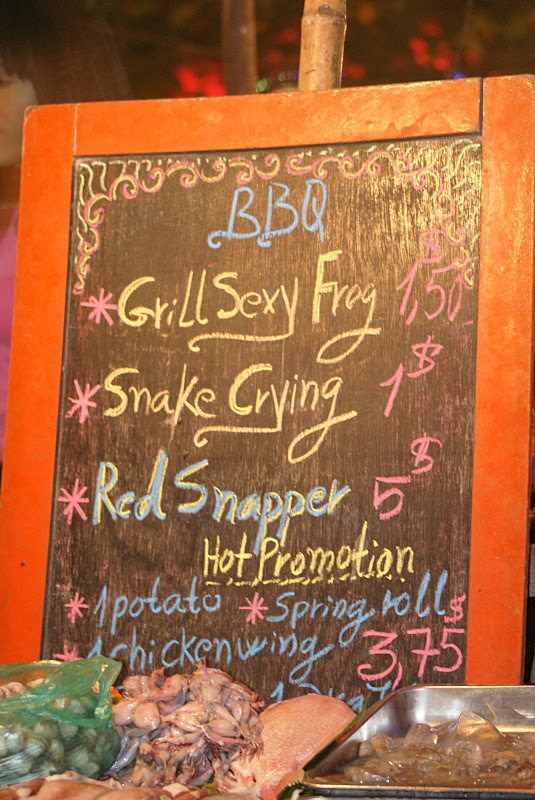 BBQ
* Grill Sexy Frog 1,50 $
* Snake Crying 1 $
* Red Snapper 5 $
Hot Promotion
* 1 potato * Spring roll $
* 1 chicken wing 3,75